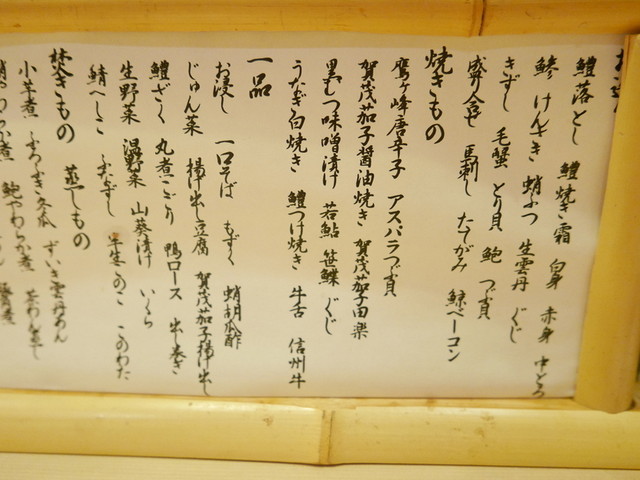 鱧落とし 鱧焼き霜 白身 赤身 中とろ
鯵 けんさき 蛸ぶつ 生雲丹 ぐじ
きずし 毛蟹 とり貝 鮑 つぶ貝
盛り合せ 馬刺し たてがみ 鯨ベーコン
焼きもの
鷹ヶ峰唐辛子 アスパラつぶ貝
賀茂茄子醤油焼き 賀茂茄子田楽
黒むつ味噌漬け 若鮎 笹鰈 ぐじ
うなぎ白焼き 鱧つけ焼き 牛舌 信州牛
一品
お浸し 一口そば もずく 蛸胡瓜酢
じゅん菜 揚げ出し豆腐 賀茂茄子揚げ出し
鱧ざく 丸煮こごり 鴨ロース 出し巻き
生野菜 温野菜 山葵漬け いくら
鯖へしこ ふなずし 半生このこ このわた
焚きもの 蒸しもの
小芋煮 ふろふき冬瓜 ずいき雲丹あん
鮑やわらか煮 茶わん蒸し